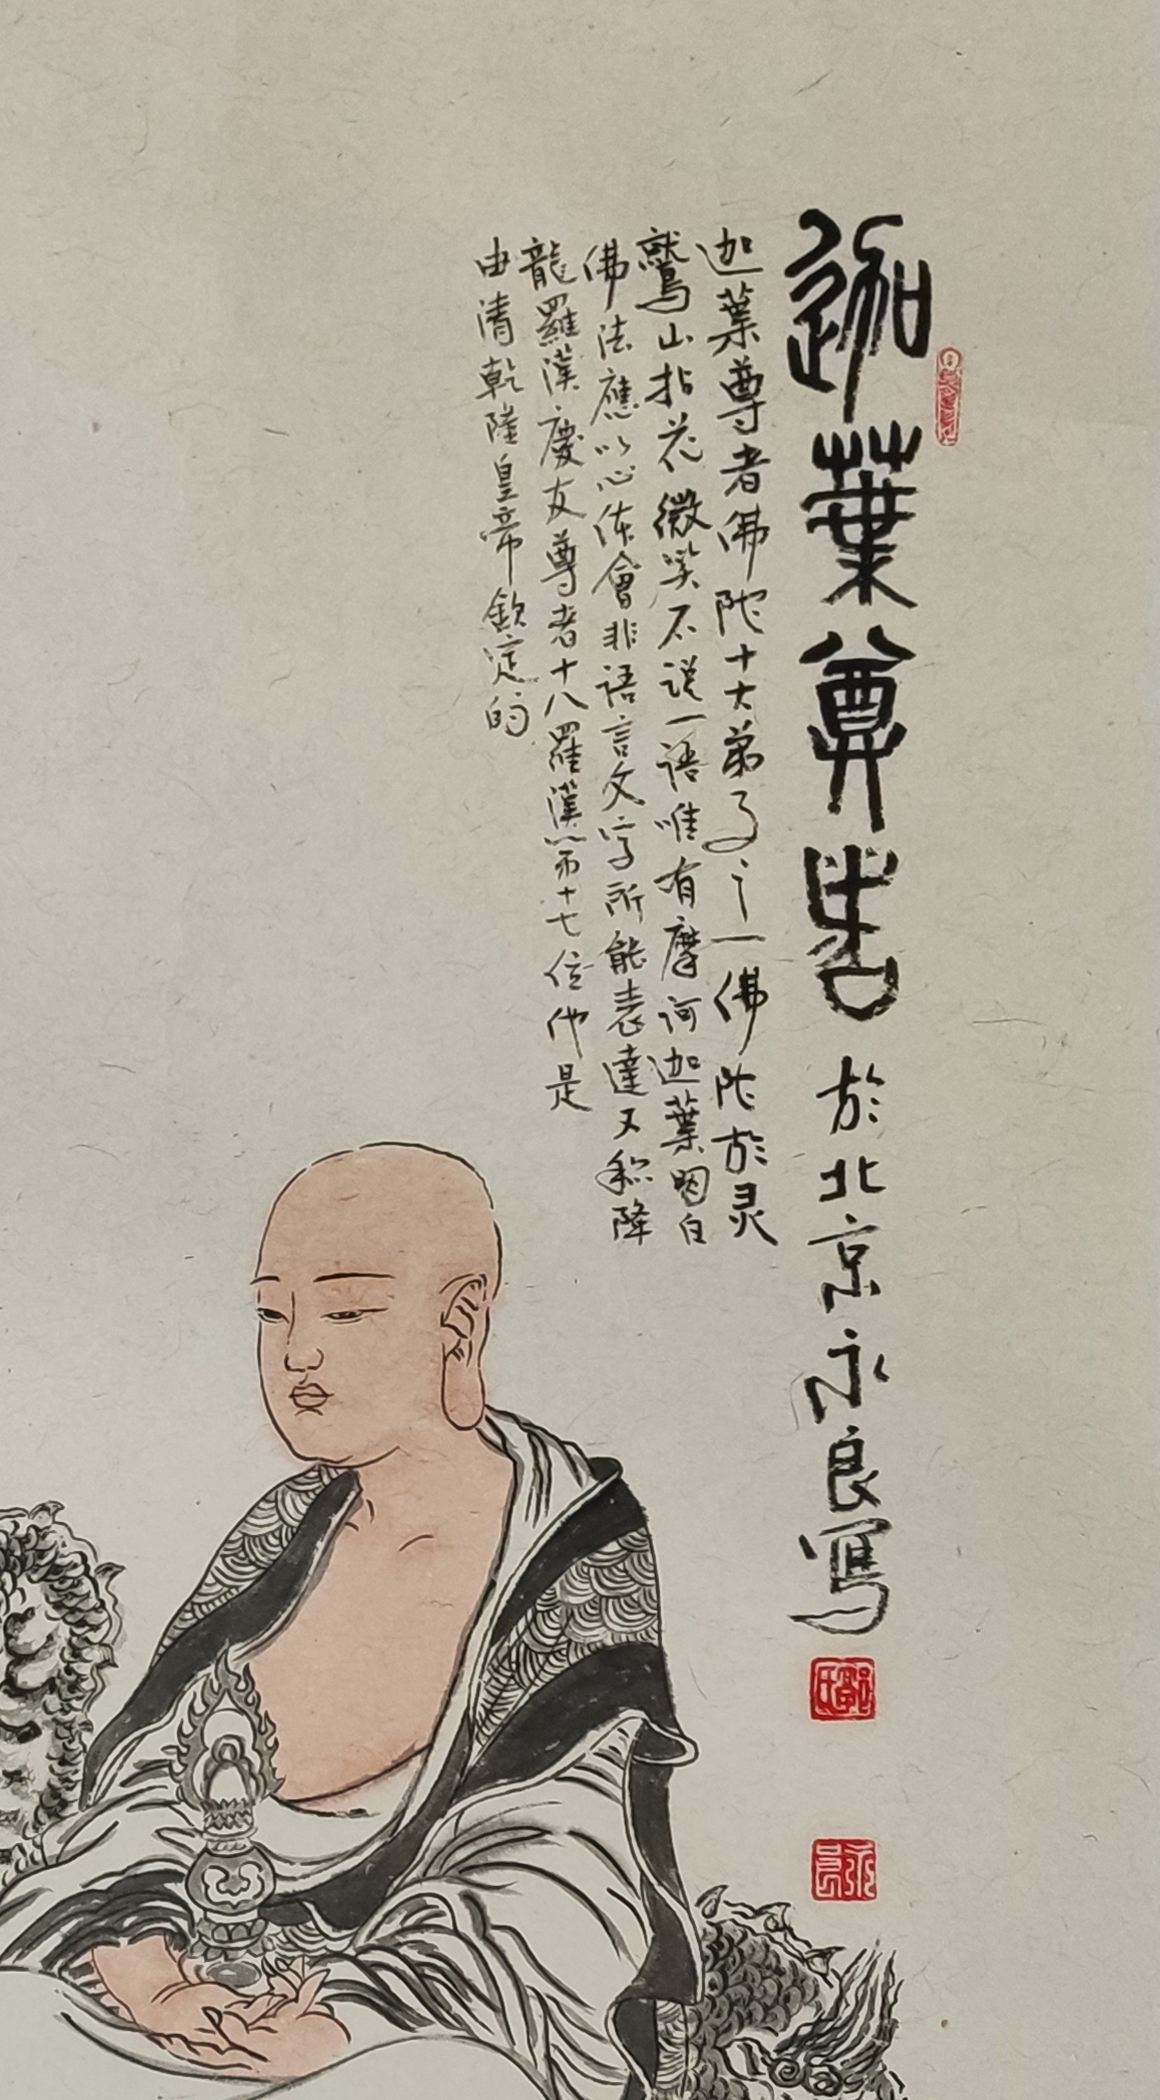 迦葉尊者 於北京永良寫
迦葉尊者佛陀十大弟子之一佛陀於灵
鷲山拈花微笑不説一語唯有摩訶迦葉明白
佛法應以心体會非語言文字所能表達又称降
龍羅漢慶友尊者十八羅漢第十七位他是
由清乾隆皇帝欽定的
永良